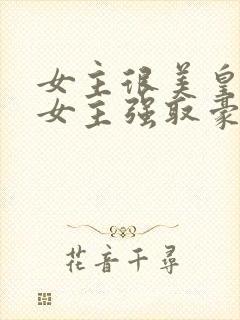 女主很美皇
女主强取豪
花音千寻